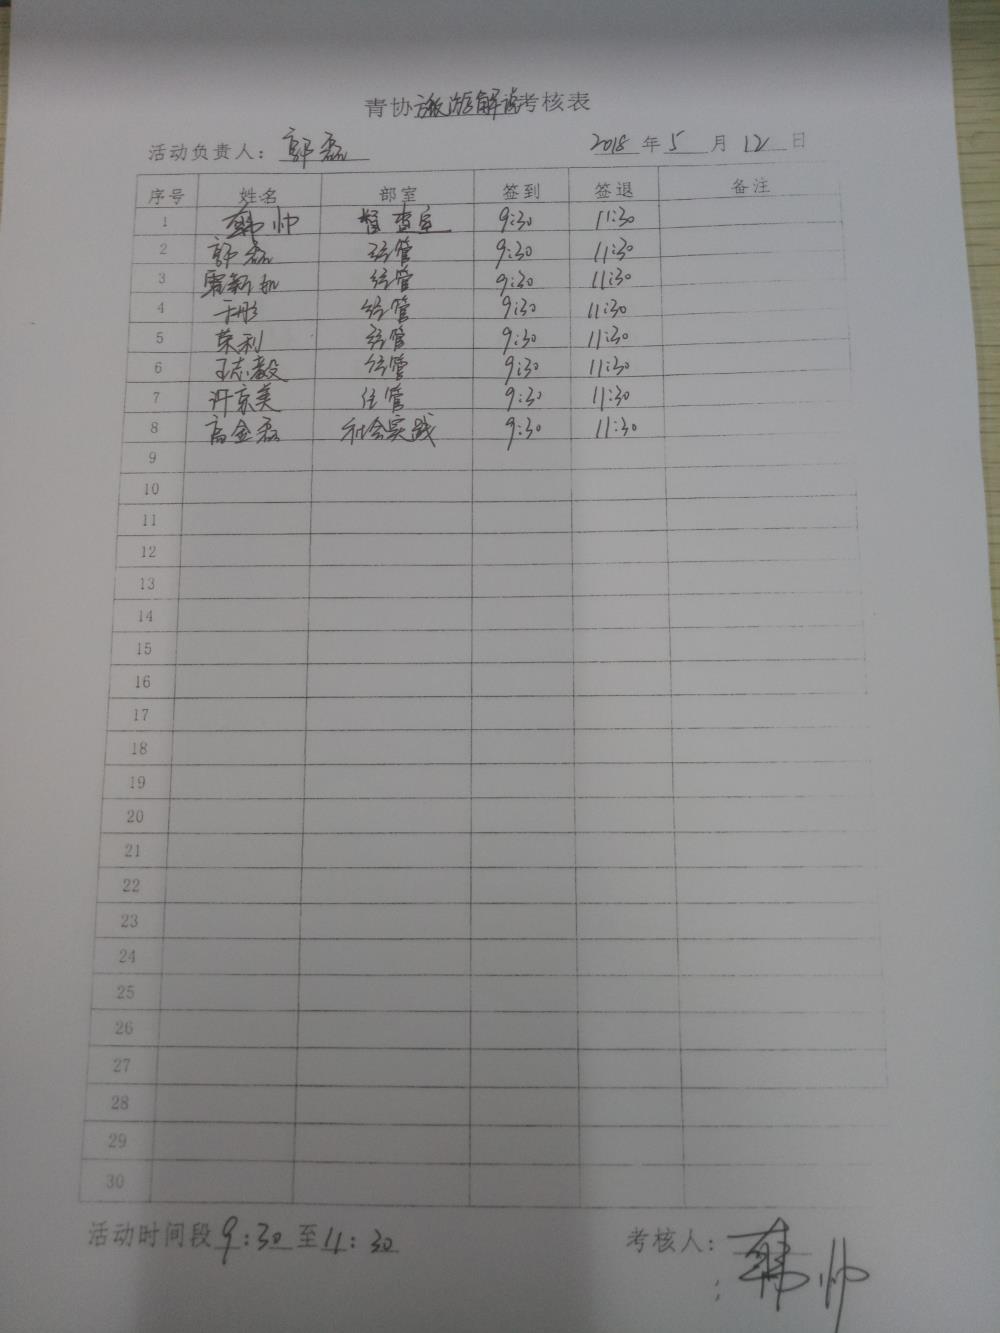 青协旅游解说考核表
活动负责人：郭磊 2018年5月12日
序号 姓名 部室 签到 签退 备注
1 韩帅 督查室 9:30 11:30
2 郭磊 经管 9:30 11:30
3 经管 9:30 11:30
4 于彤 经管 9:30 11:30
5 荣利 经管 9:30 11:30
6 王志毅 经管 9:30 11:30
7 许京美 经管 9:30 11:30
8 高金磊 社会实践 9:30 11:30
9
10
11
12
13
14
15
16
17
18
19
20
21
22
23
24
25
26
27
28
29
30
活动时间段9:30至11:30 考核人：韩帅